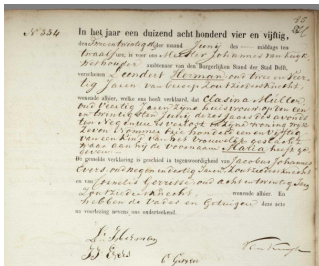 No 334
In het jaar een duizend acht honderd vier en vijftig,
den twee en twintigste der maand Juny des middags ten
twaalf ure, is voor ons Meester Johannes van
Wethouder ambtenaar van den Burgerlijken Stand der Stad Delft,
verschenen Leendert Herman oud twee en veer
tig Jaren van beroep Zoutziedersknecht
wonende alhier, welke ons heeft verklaard, dat Clasina Mullen
oud veertig Jaren Zijne huisvrouw op den een
en twintigsten Juny dezes jaars des avonds
ten Negen ure
Zeven Vrouwen
van een kind van het vrouwelijk geslacht
waar aan hij de voornaam Maria heeft ge
geven
De gemelde verklaring is geschied in tegenwoordigheid van Jacobus Johannes
Evers oud negen en dertig Jaren Zoutziedersknecht
en van Cornelis Gerresse oud acht en twintig Jaren
Zoutziedersknecht wonende alhier. En
hebben de Vader en Getuigen deze acte
na voorlezing nevens ons onderteekend.
L. Herman
J J Evers
C Gerresse